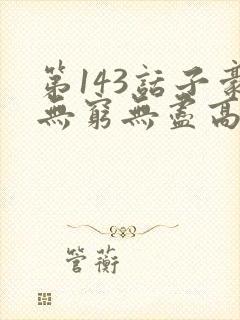 第143話子豪
無窮無盡高
管蘅